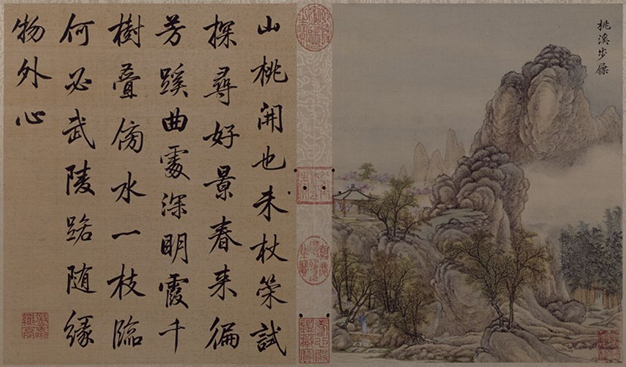 桃溪步屧
山桃開也未杖策試
探尋好景春来徧
芳蹊曲處深明霞千
樹疊傍水一枝臨
何必武陵路随緣
物外心